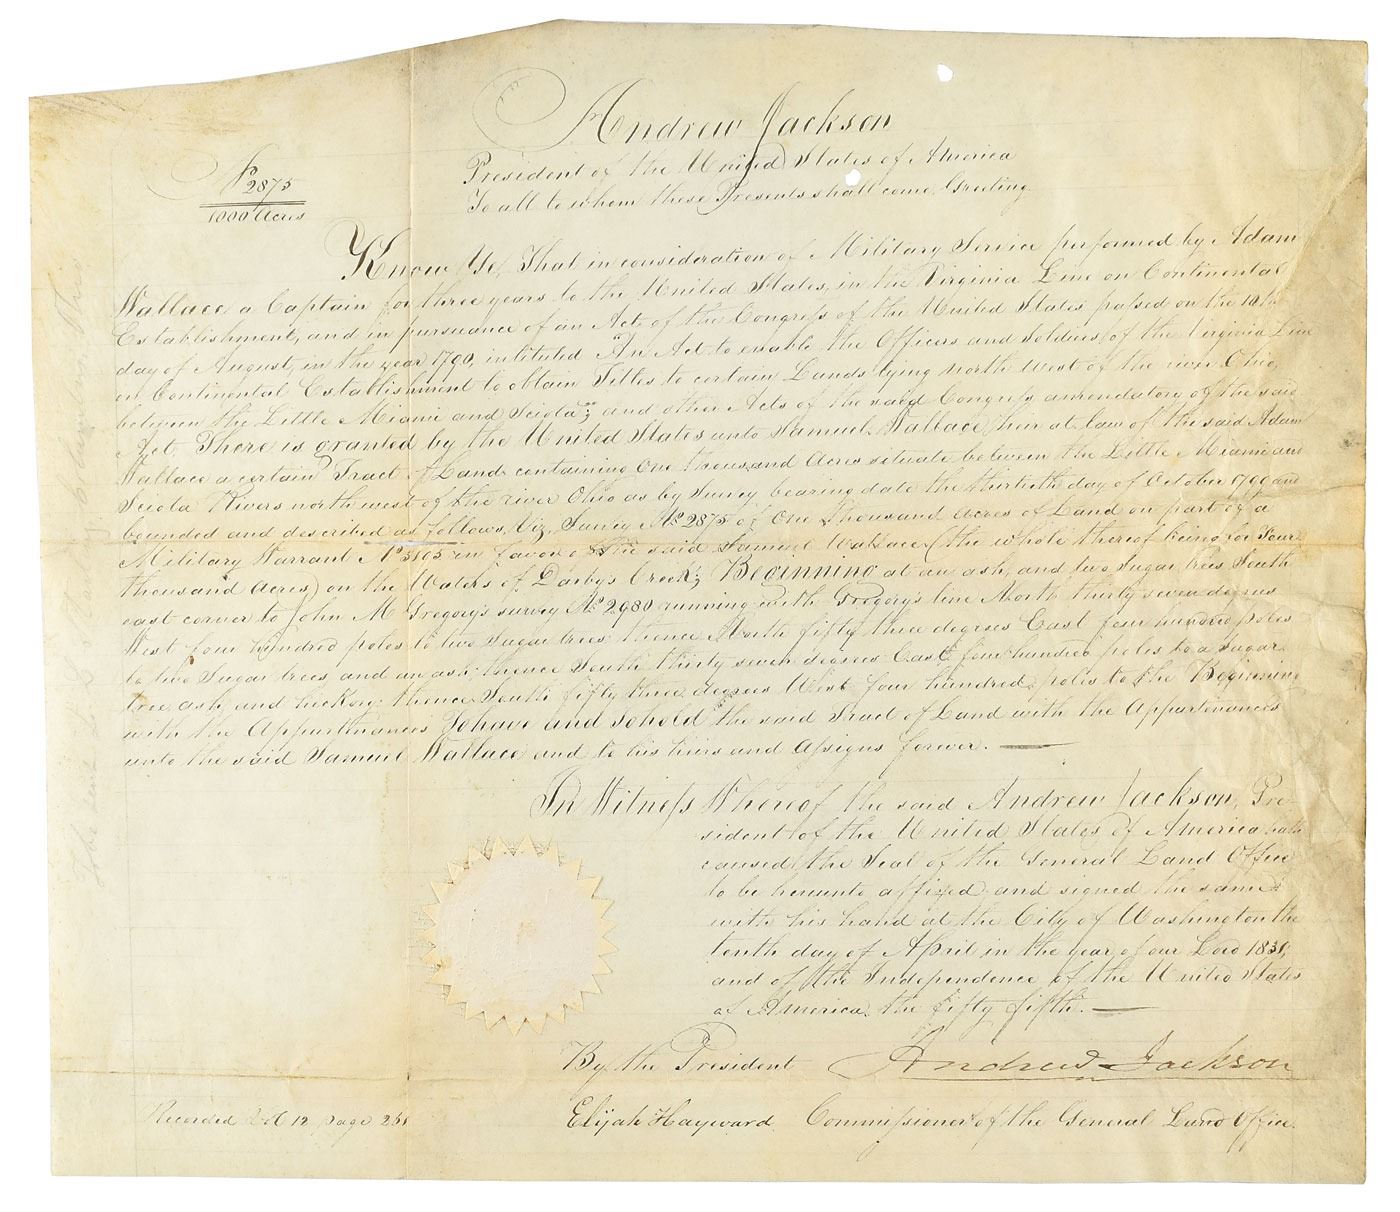 Andrew Jackson
President of the United States of America
To all to whom these Presents shall come, Greeting
No
2875
1000 Acres
Know Ye, That in consideration of Military Service performed by Adam
Wallace a Captain for three years to the United States, in the Virginia Line on Continental
Establishment, and in pursuance of an Act of the Congress of the United States passed on the 10th
day of August, in the year 1790, intituled "An Act to enable the Officers and Soldiers of the Virginia Line
on Continental Establishment to obtain Titles to certain Lands lying north west of the river Ohio,
between the Little Miami and Sciota"; and other Acts of the said Congress amendatory of the said
Act, There is granted by the United States unto Samuel Wallace heir at law of the said Adam
Wallace a certain Tract of Land containing One thousand Acres situate between the Little Miami and
Sciota Rivers north west of the river Ohio as by Survey bearing date the thirtieth day of October 1799 and
bounded and described as follows, Viz, Survey No 2875 of One thousand acres of Land on part of a
Military Warrant No 5105 in favor of the said Samuel Wallace (the whole thereof being for Four
thousand Acres) on the Waters of Darby's Creek; Beginning at an ash, and two Sugar trees South
east corner to John McGregory's survey No 2980 running with Gregory's line North thirty seven degrees
West four hundred poles to two Sugar trees thence North fifty three degrees East four hundred poles
to two Sugar trees, and an ash; thence South thirty seven degrees East four hundred poles to a Sugar
tree, ash, and hickory: thence South fifty three degrees West four hundred poles to the Beginning
with the Appurtenances To have and to hold the said Tract of Land with the Appurtenances
unto the said Samuel Wallace and to his heirs and assigns forever.
In Witness Whereof the said Andrew Jackson, Pre-
sident of the United States of America hath
caused the Seal of the General Land Office
to be hereunto affixed and signed the same
with his hand at the City of Washington the
tenth day of April in the year of our Lord 1831,
and of the Independence of the United States
of America, the fifty fifth.
By the President Andrew Jackson
Elijah Hayward Commissioner of the General Land Office.
Recorded Vol 12 page 261